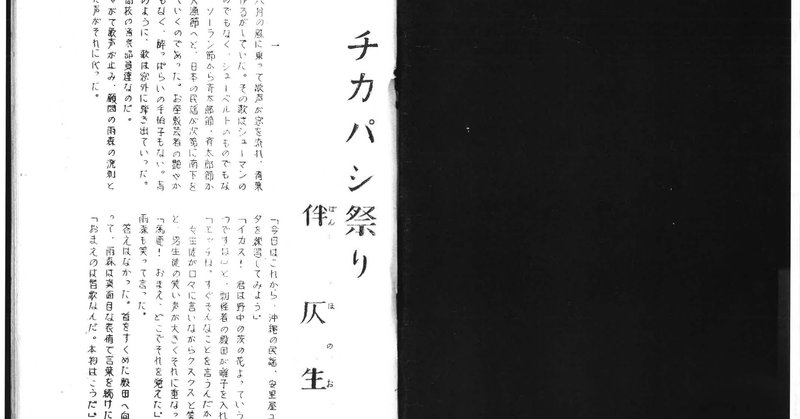 チカパシ祭り
伴仄生
ばん ほのお
一
八月の風に乗って歌声が窓を流れ、青葉
るがしていた。その歌はシューマンの
のでもなく、シューベルトのものでもな
ソーラン節から斉太郎節、斉太郎節か
大漁節へと、日本の民謡が次第に南下を
ていくのであった。お座敷芸者の艶やか
もなく、酔っぱらいの手拍子もない。高
のように、歌は窓外に弾き出ていった。
高校の音楽部員達なのだ。
やがて歌声が止み、顧問の雨森の溌剌と
た声がそれに代った。
「今日はこれから、沖縄の民謡、安里屋ユ
タを練習してみよう」
「イカス！ 君は野中の茨の花よっていう
つですね」と、剽軽者の殿田が囃子を入れ
「エッチね、すぐそんなことを言うんだか
女生徒が口々に言いながらクスクスと笑
と、男生徒の笑い声が大きくそれに重な
「馬鹿！ おまえ、どこでそれを覚えた」
雨森も笑って言った。
答えはなかった。首をすくめた殿田へ向
って、雨森は真面目な表情で言葉を続けた
「おまえのは替歌なんだ。本物はこうだ